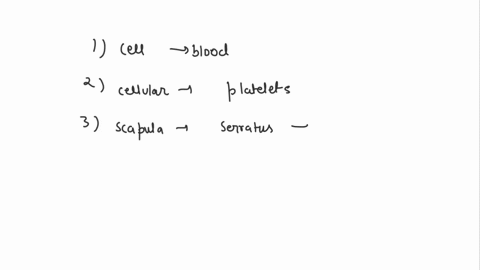 1) cell → blood
2) cellular → platelets
3) scapula → serratus —